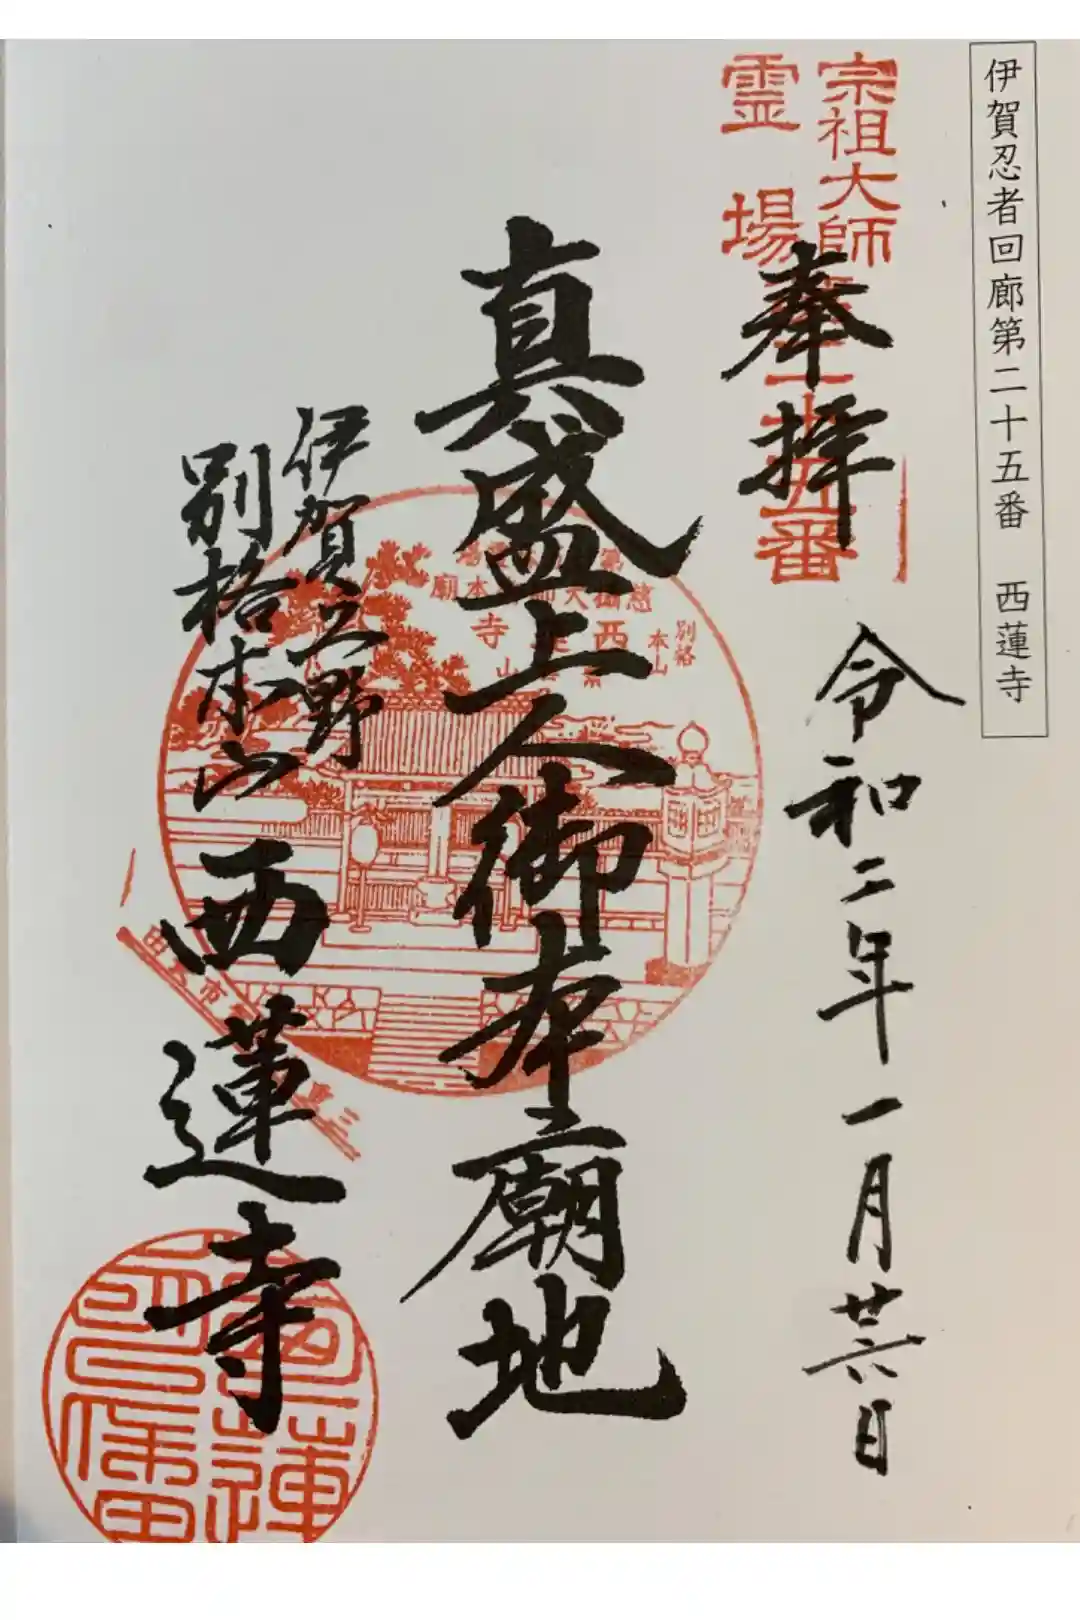 伊賀忍者回廊第二十五番　西蓮寺
宗祖大師
霊場
五番
奉拝
令和二年一月廿六日
真盛上人御本廟地
伊賀上野
別格本山
西蓮寺
別格
本山